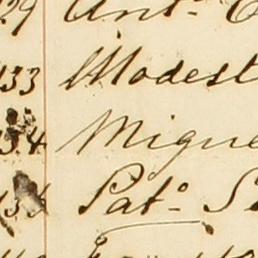 29 Anto
133 Modest
134 Migue
135 Pato